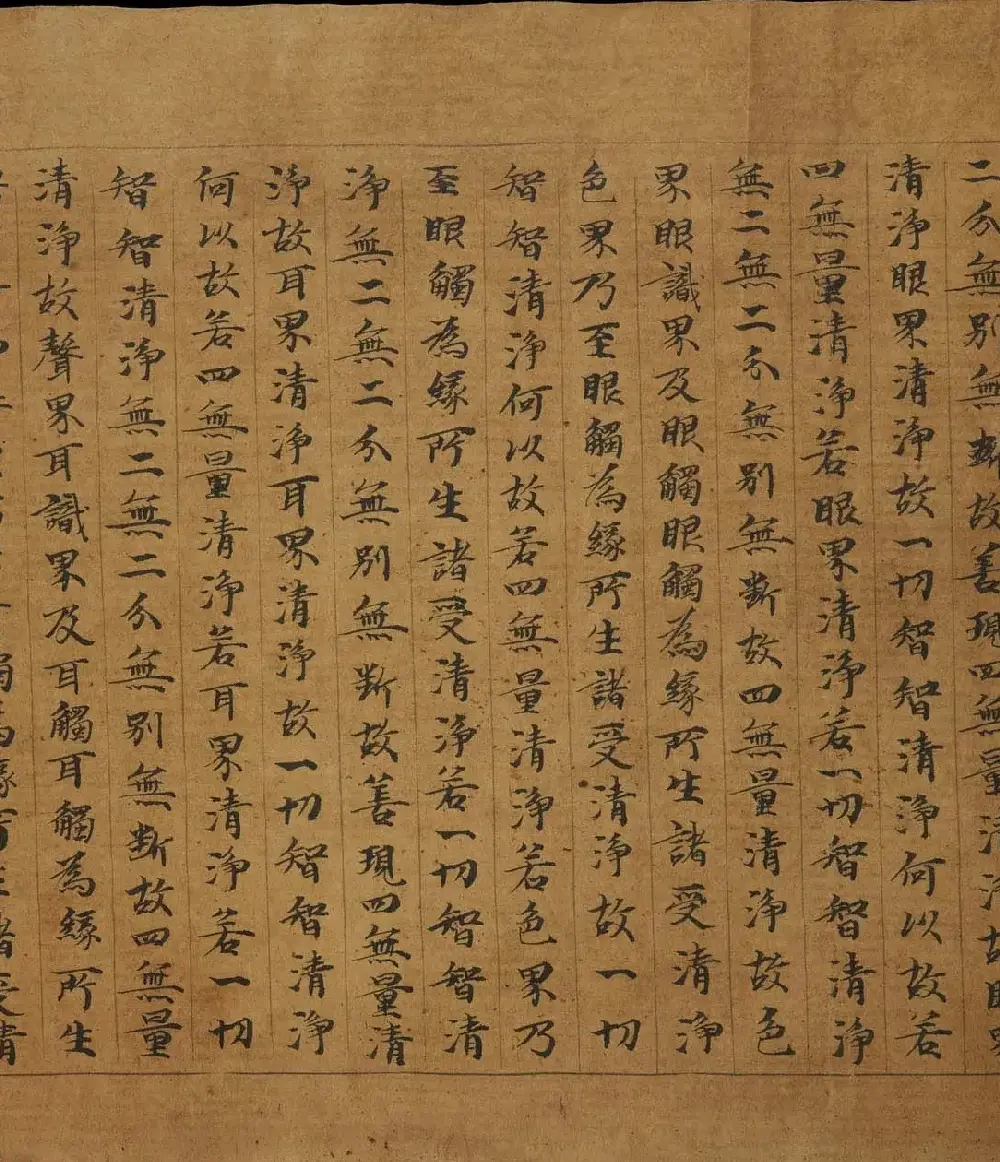 二分無別無斷故善現四無量清淨故眼界
清淨眼界清淨故一切智智清淨何以故若
四無量清淨若眼界清淨若一切智智清淨
無二無二分無別無斷故四無量清淨故色
界眼識界及眼觸眼觸為緣所生諸受清淨
色界乃至眼觸為緣所生諸受清淨故一切
智智清淨何以故若四無量清淨若色界乃
至眼觸為緣所生諸受清淨若一切智智清
淨無二無二分無別無斷故善現四無量清
淨故耳界清淨耳界清淨故一切智智清淨
何以故若四無量清淨若耳界清淨若一切
智智清淨無二無二分無別無斷故四無量
清淨故聲界耳識界及耳觸耳觸為緣所生
觸為緣所生諸受清